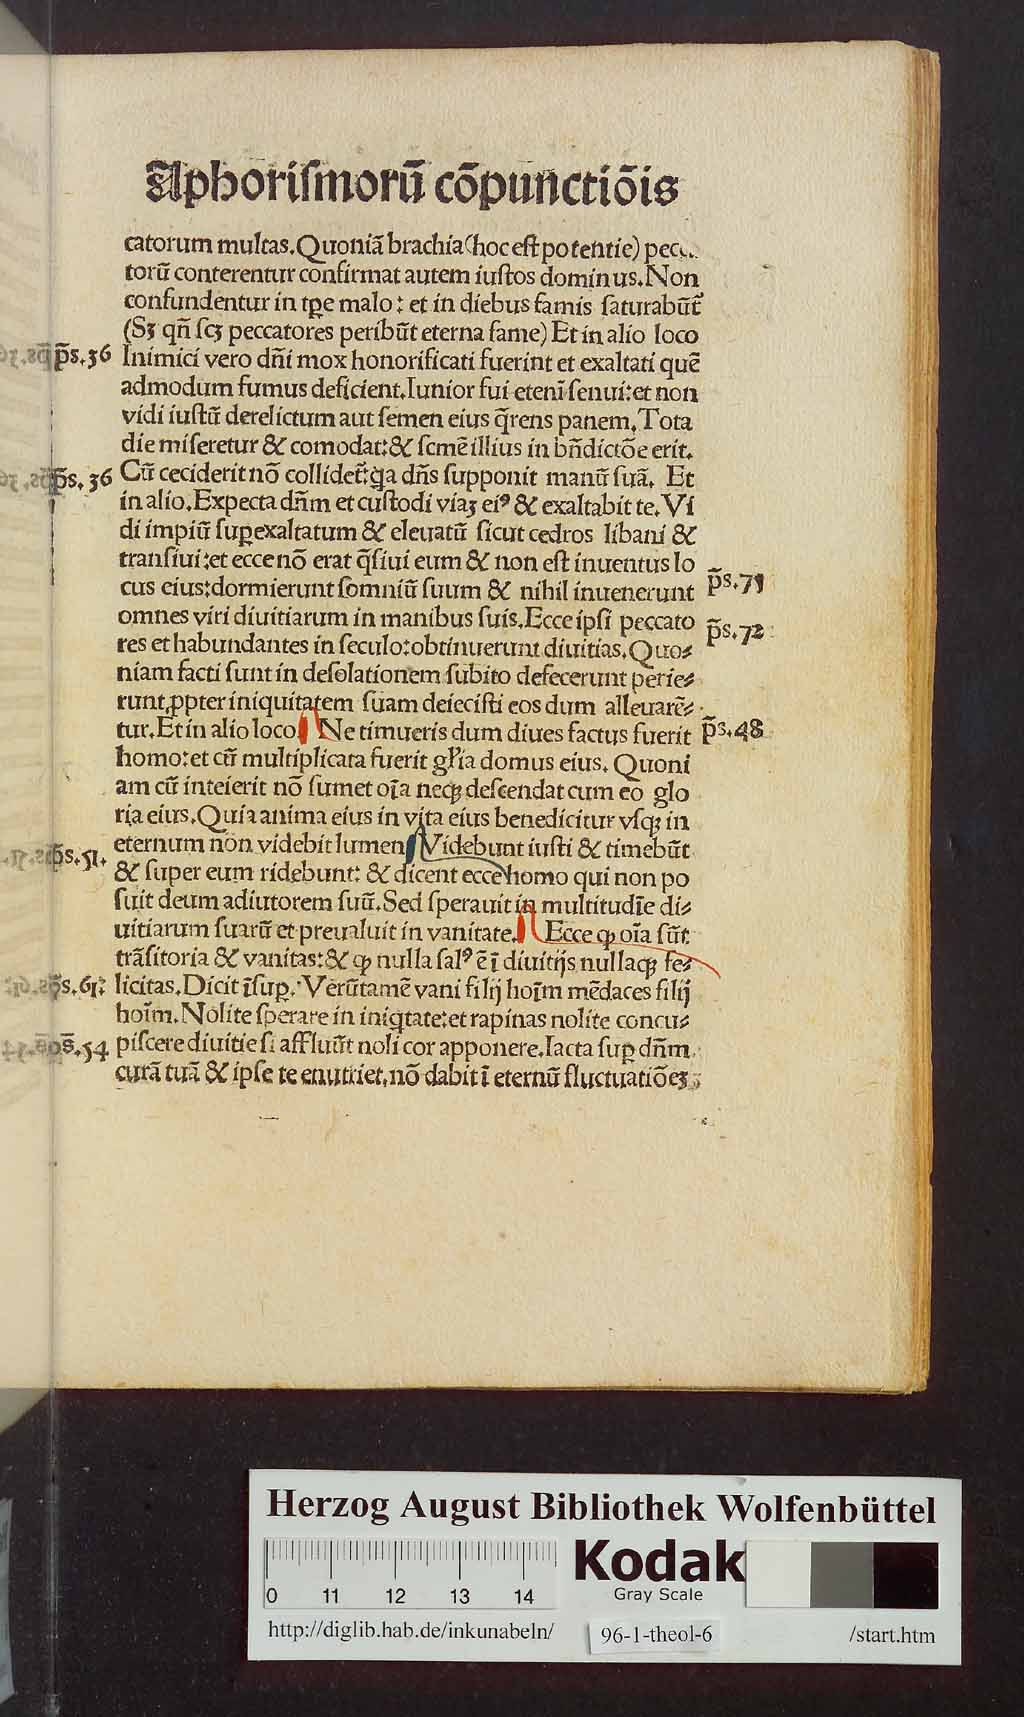 Aphorismorū cōpunctiōis
catorum multas. Quoniā brachia (hoc est potentie) pecc
torū conterentur confirmat autem iustos dominus. Non
confundentur in tꝑe malo: et in diebus famis saturabūt᷑
(Sꝫ qñ scꝫ peccatores peribūt eterna fame) Et in alio loco
p̄s.36 Inimici vero dñi mox honorificati fuerint et exaltati quē
admodum fumus deficient. Iunior fui etenī senui: et non
vidi iustū derelictum aut semen eius q̄rens panem. Tota
die miseretur & comodat: & semē illius in bñdictōe erit.
p̄s.36 Cū ceciderit nō collidet᷑: q̄a dñs supponit manū suā. Et
in alio. Expecta dñm et custodi viaꝫ eiꝰ & exaltabit te. Vi
di impiū suꝑexaltatum & eleuatū sicut cedros libani &
transiui: et ecce nō erat q̄siui eum & non est inuentus lo
cus eius: dormierunt somniū suum & nihil inuenerunt p̄s.75
omnes viri diuitiarum in manibus suis. Ecce ipsi peccato p̄s.72
res et habundantes in seculo: obtinuerunt diuitias. Quo⸗
niam facti sunt in desolationem subito defecerunt perie⸗
runt ꝓpter iniquitatem suam deiecisti eos dum alleuarē⸗
tur. Et in alio loco Ne timueris dum diues factus fuerit p̄s.48
homo: et cū multiplicata fuerit gl'ia domus eius. Quoni
am cū inteierit nō sumet oīa neqꝫ descendat cum eo glo
ria eius. Quia anima eius in vita eius benedicitur vsqꝫ in
eternum non videbit lumen Videbunt iusti & timebūt
p̄s.51. & super eum ridebunt: & dicent ecce homo qui non po
suit deum adiutorem suū. Sed sperauit in multitudīe di⸗
uitiarum suarū et preualuit in vanitate. Ecce ꝙ oīa sūt
trāsitoria & vanitas: & ꝙ nulla salꝰ ē ī diuitijs nullaqꝫ fe⸗
p̄s.61: licitas. Dicit īsuꝑ. Verūtamē vani filij hoīm mēdaces filij
hoīm. Nolite sperare in iniq̄tate: et rapinas nolite concu⸗
p̄s.54 piscere diuitie si affluūt noli cor apponere. Iacta suꝑ dñm
curā tuā & ipse te enutriet, nō dabit ī eternū fluctuatiōeꝫ
Herzog August Bibliothek Wolfenbüttel
Kodak
Gray Scale
0 11 12 13 14
http://diglib.hab.de/inkunabeln/ 96-1-theol-6 /start.htm